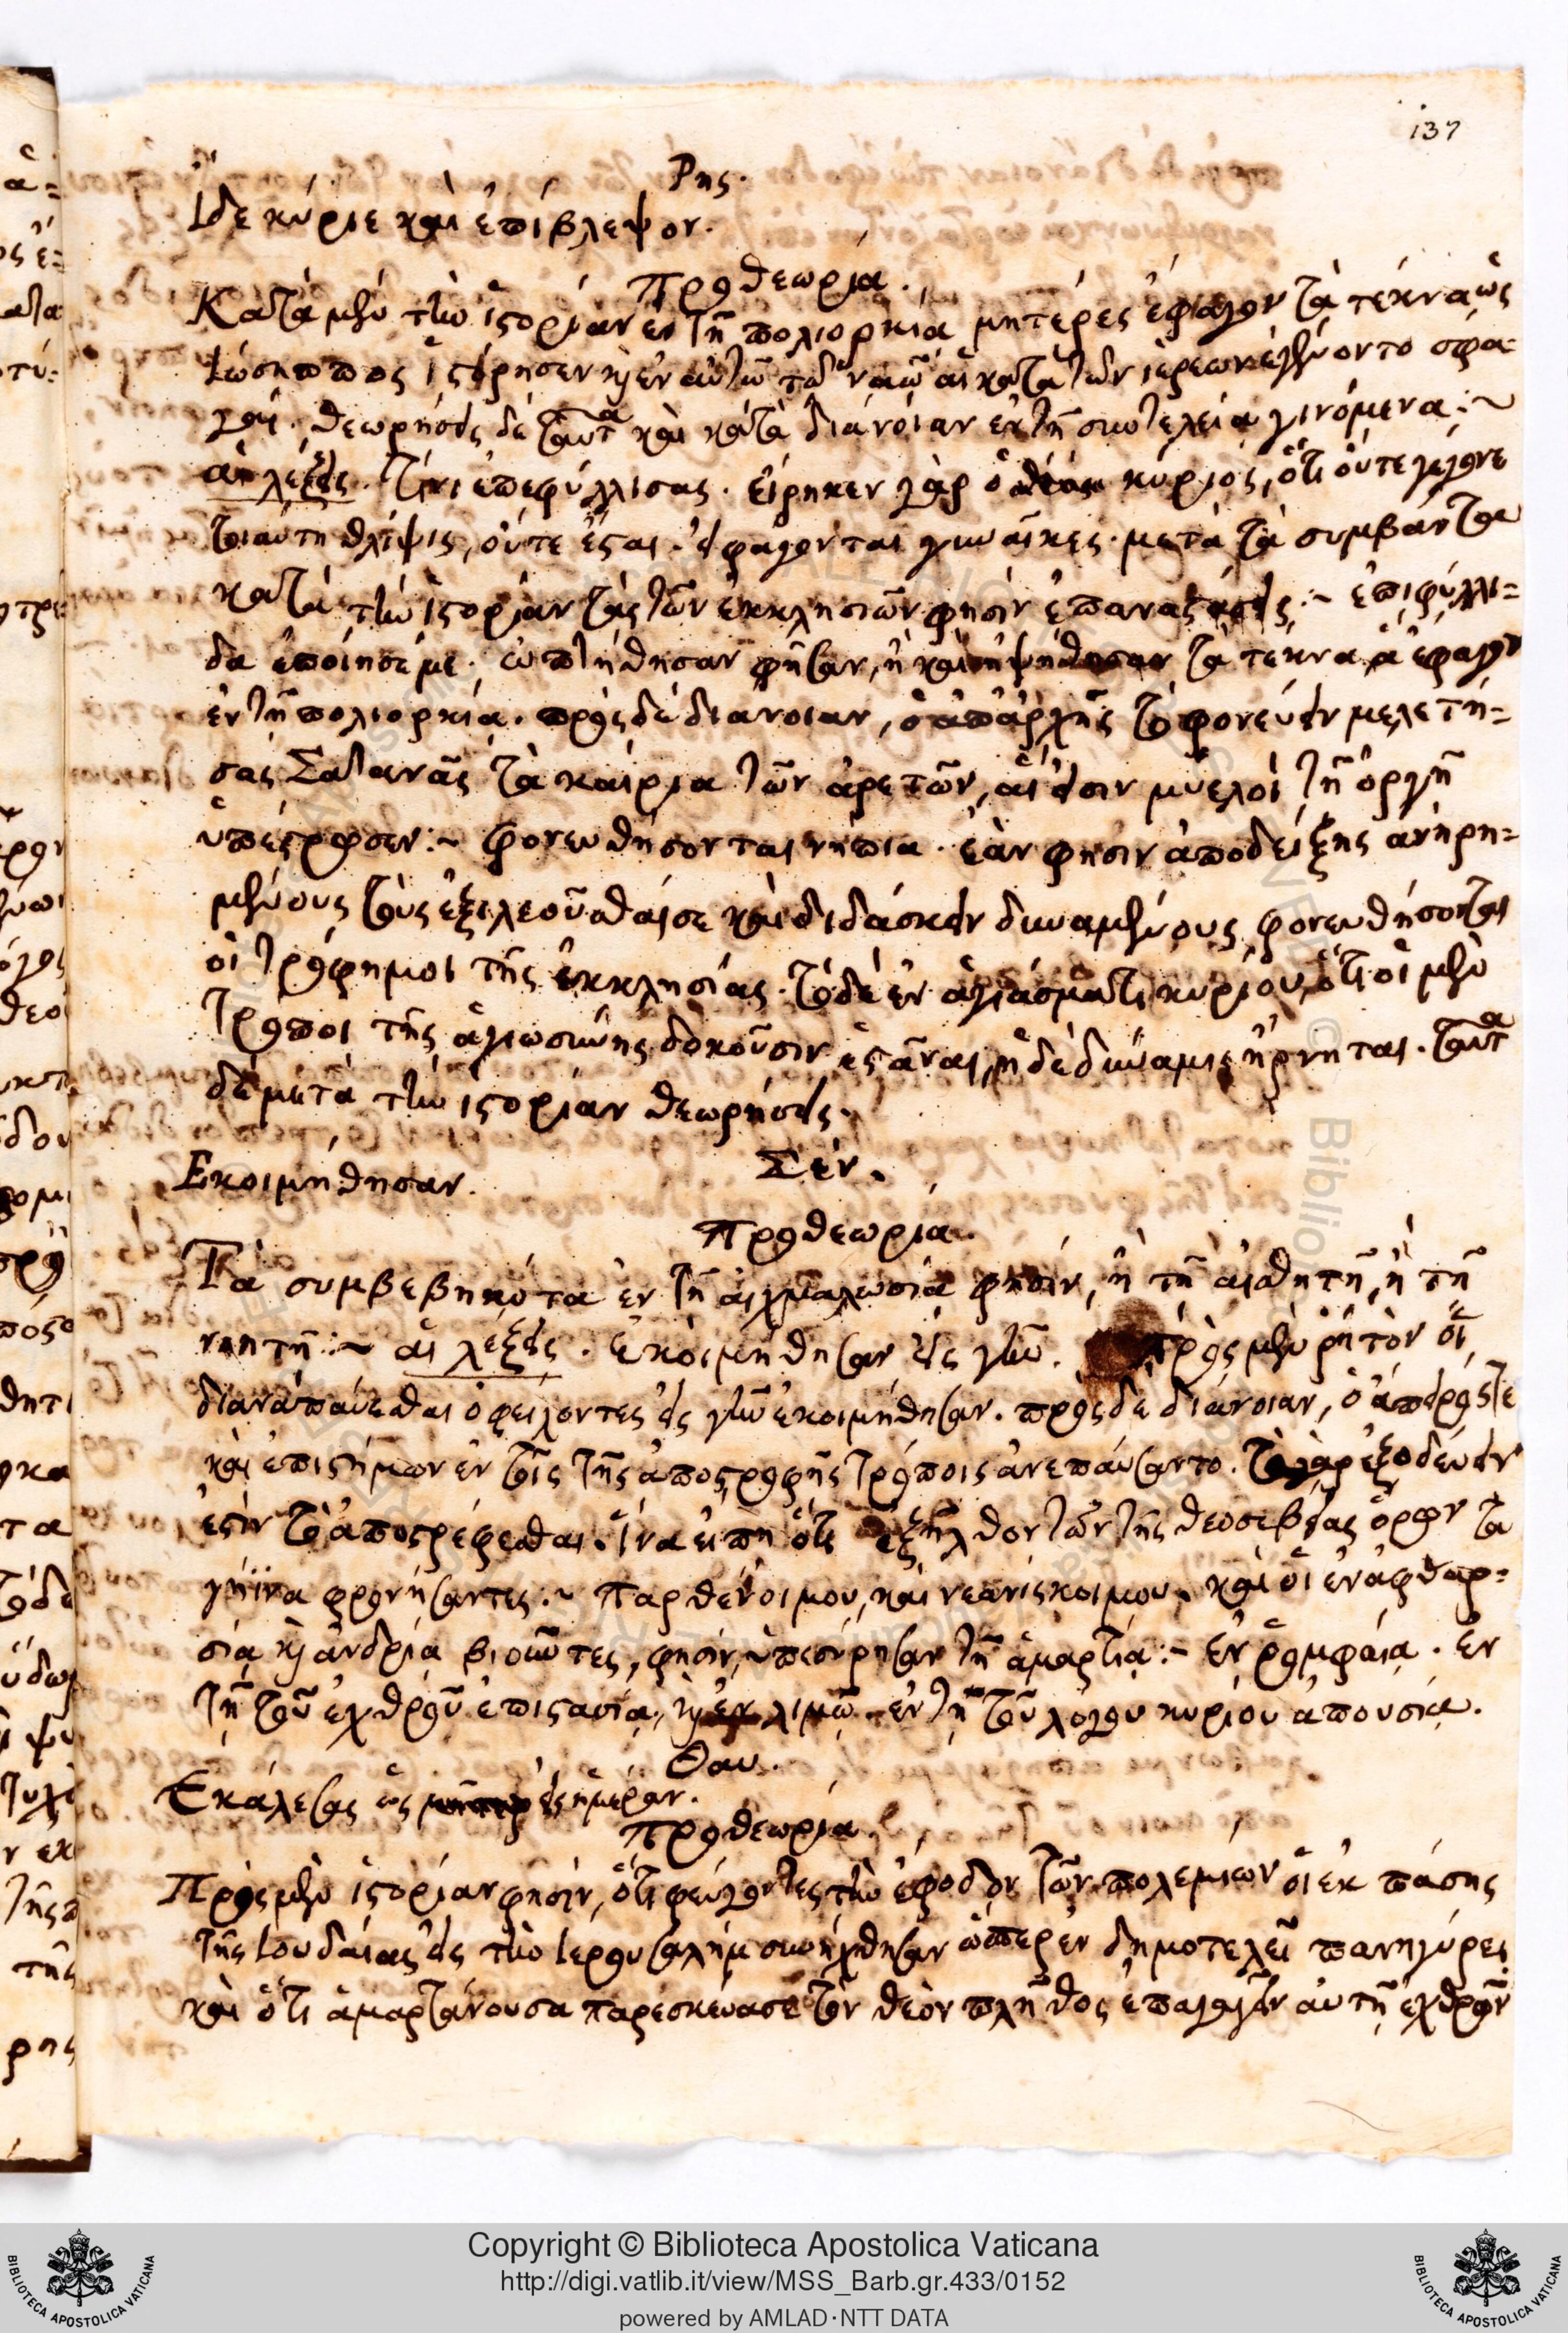 137
Ρης.
Ἴδε κύριε καὶ ἐπίβλεψον.
Προθεωρία.
Κατὰ μὲν τὴν ἱστορίαν ἐν τῇ πολιορκίᾳ μητέρες ἔφαγον τὰ τέκνα ὡς
Ἰώσηππος ἱστόρησεν κ̀ ἐν αὐτῷ τῷ ναῷ αἱ κατὰ τῶν ἱερέων ἐγένοντο σφα=
γαί. θεωρήσεις δὲ ταῦτα καὶ κατὰ διάνοιαν ἐν τῇ συντελείᾳ γινόμενα:~
αἱ λέξεις. Τίνι ἐπεφύλλισας. εἴρηκεν γὰρ ὁ κύριος, ὅτι οὔτε γέγονε
τοιαύτη θλίψις, οὔτε ἔσται. εἰ φάγονται γυναῖκες. μετὰ τὰ συμβάντα
κατὰ τὴν ἱστορίαν τὰς τῶν ἐκκλησιῶν φησὶν ἐπαναστάσεις:~ ἐπιφυλλί=
δα ἐποίησε με. φησαν, ἢ καὶ τὰ τέκνα, ἃ ἔφαγον
ἐν τῇ πολιορκίᾳ. πρὸς δὲ διάνοιαν, ὁ ἀπ' ἀρχῆς τὸ φονεύειν μελετή=
σας Σατανᾶς τὰ καίρια τῶν ἀρετῶν, αἵ εἰσιν μυελοὶ τῇ ὀργῇ
ὑπέστρωσεν:~ φονευθήσονται νήπια. ἐὰν φησὶν ἀποδείξῃς ἀνῃρη=
μένους τοὺς ἐξιλεοῦσθαί σε καὶ διδάσκειν δυναμένους, φονευθήσονται
οἱ τρόφιμοι τῆς ἐκκλησίας. τὸ δὲ ἐν ἁγιάσματι κυρίου, ὅτι οἱ μὲν
τρόποι τῆς ἁγιωσύνης δοκοῦσιν ἑστᾶναι, ἡ δὲ δύναμις ἤρνηται. ταῦτα
δὲ μετὰ τὴν ἱστορίαν θεωρήσεις.
Σέν.
Ἐκοιμήθησαν.
Προθεωρία.
Τὰ συμβεβηκότα ἐν τῇ αἰχμαλωσίᾳ φησίν, ἢ τῇ αἰσθητῇ, ἢ τῇ
νοητῇ:~ αἱ λέξεις. Ἐκοιμήθησαν εἰς γῆν. πρὸς μὲν ῥητὸν οἱ
διαναπαύεσθαι ὀφείλοντες εἰς γῆν ἐκοιμήθησαν. πρὸς δὲ διάνοιαν, ὁ ἄπορός τε
καὶ ἐπιστήμων ἐν τοῖς τῆς ἀποστροφῆς τρόποις ἀνεπαύσαντο. τὸ γὰρ ἐξοδεύειν
ἐστὶν τὸ ἀποστρέφεσθαι. ἵνα εἴπῃ ὅτι ἐξῆλθον τῶν τῆς θεοσεβείας ὅρων τὰ
γήϊνα φρονήσαντες:~ Παρθένοι μου, καὶ νεανίσκοι μου. καὶ οἱ ἐν ἀφθαρ=
σίᾳ κ̀ ἀνδρίᾳ βιοῦντες, φησίν, ὑπεσύρησαν τῇ ἁμαρτίᾳ:~ ἐν ῥομφαίᾳ. ἐν
τῇ τοῦ ἐχθροῦ ἐπιστασίᾳ, κ̀ ἐν λιμῷ. ἐν τῇ τοῦ λόγου κυρίου ἀπουσίᾳ.
Θαυ.
Ἐκάλεσας ὡς εἰς ἡμέραν.
Προθεωρία.
Πρὸς μὲν ἱστορίαν φησίν, ὅτι φεύγοντες τὴν ἔφοδον τῶν πολεμίων οἱ ἐκ πάσης
τῆς Ἰουδαίας εἰς τὴν Ἱερουσαλὴμ συνήχθησαν ὥσπερ ἐν δημοτελεῖ πανηγύρει
καὶ ὅτι ἁμαρτάνουσα παρεσκεύασε τὸν θεὸν πλῆθος ἐπαγαγεῖν αὐτῇ ἐχθρῶν
Copyright © Biblioteca Apostolica Vaticana
http://digi.vatlib.it/view/MSS_Barb.gr.433/0152
powered by AMLAD·NTT DATA